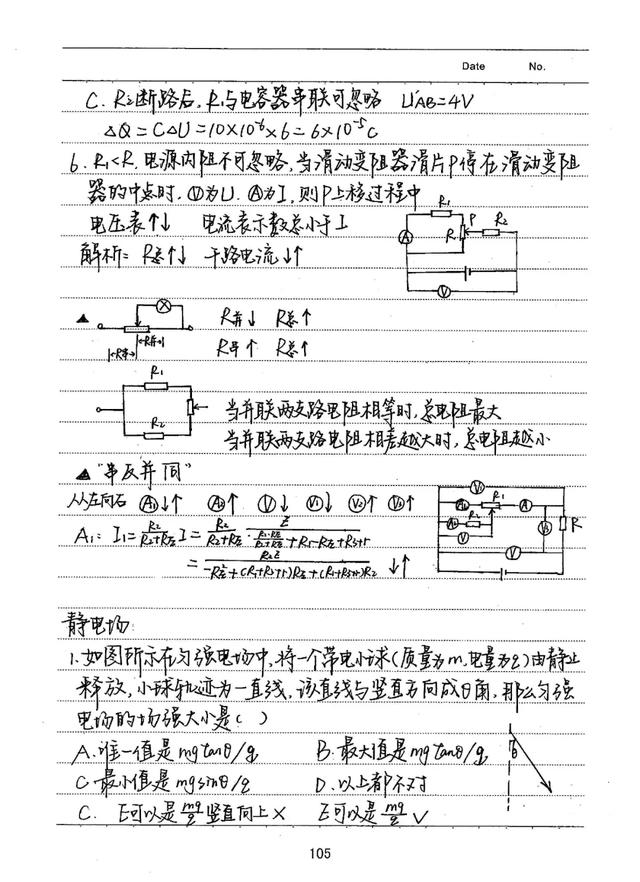 Date No.
C. R₂断路后, R₁与电容器串联可忽略 U'AB=4V
ΔQ=CΔU=10×10⁻⁶×6=6×10⁻⁵C
6. R₁<R, 电源内阻不可忽略, 当滑动变阻器滑片P停在滑动变阻
器的中点时, Ⓥ为U, Ⓐ为I, 则P上移过程中
电压表↑↓ 电流表示数总小于I
解析: R总↑↓ 干路电流↓↑
R₁ P R₂ R A V
▲ R并↓ R总↑
R串↑ R总↑
R串 R并
R₁
当并联两支路电阻相等时, 总电阻最大
R₂
当并联两支路电阻相差越大时, 总电阻越小
▲ "串反并同"
从左向右 A₁↓↑ A₂↑ V↓ V₁↓ V₂↑ V₃↑
A₁: I₁=
↓↑
静电场:
1. 如图所示在匀强电场中, 将一个带电小球(质量为m, 电量为q)由静止
释放, 小球轨迹为一直线, 该直线与竖直方向成θ角, 那么匀强
电场的场强大小是( )
A. 唯一值是mgtanθ/q B. 最大值是mgtanθ/q
θ
C. 最小值是mgsinθ/q D. 以上都不对
C. E可以是mg/q竖直向上× E可以是mg/q√
105